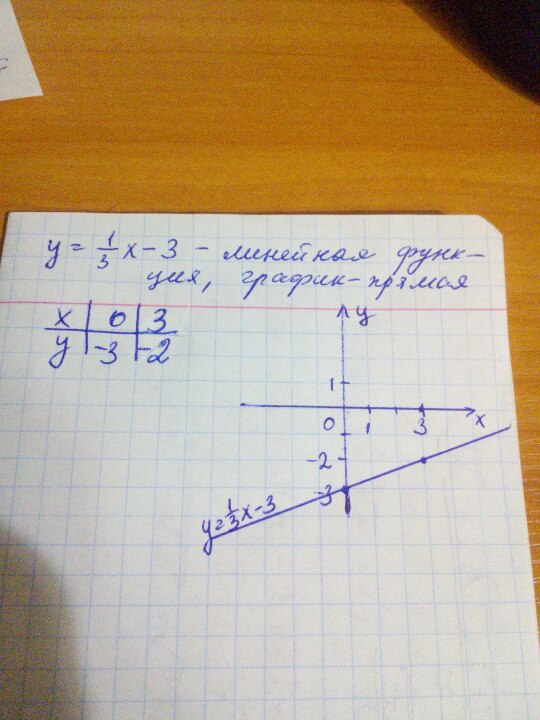 y = 1/3 x - 3 - линейная функ-
ция, график-прямая
x | 0 | 3
y | -3 | -2
y
1
0 1 3 x
-2
-3
y=1/3x-3